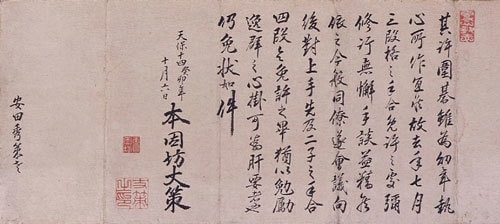 其許圍碁雖為幼年執
心所作宜故去年七月
三段格之手合免許之處弥
修行無懈手談益精
依之今般同僚遂會議向
後對上手先及二子之手合
四段令免許之畢猶以勉勵
逸群之心掛可為肝要者也
仍免状如件
天保十四癸卯年
十月六日
本因坊丈策
安田秀策